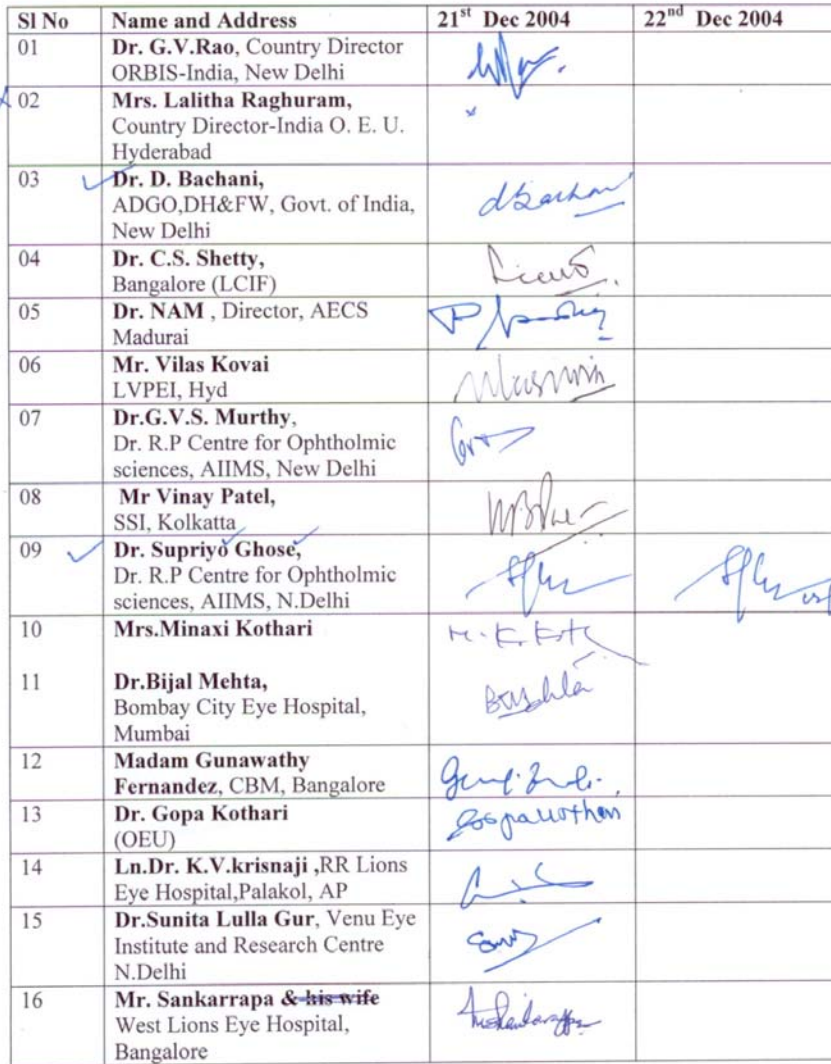 Sl No Name and Address 21st Dec 2004 22nd Dec 2004
01 Dr. G.V.Rao, Country Director
ORBIS-India, New Delhi
02 Mrs. Lalitha Raghuram,
Country Director-India O. E. U.
Hyderabad
03 Dr. D. Bachani,
ADGO,DH&FW, Govt. of India,
New Delhi
04 Dr. C.S. Shetty,
Bangalore (LCIF)
05 Dr. NAM , Director, AECS
Madurai
06 Mr. Vilas Kovai
LVPEI, Hyd
07 Dr.G.V.S. Murthy,
Dr. R.P Centre for Ophtholmic
sciences, AIIMS, New Delhi
08 Mr Vinay Patel,
SSI, Kolkatta
09 Dr. Supriyo Ghose,
Dr. R.P Centre for Ophtholmic
sciences, AIIMS, N.Delhi
10 Mrs.Minaxi Kothari
11 Dr.Bijal Mehta,
Bombay City Eye Hospital,
Mumbai
12 Madam Gunawathy
Fernandez, CBM, Bangalore
13 Dr. Gopa Kothari
(OEU)
14 Ln.Dr. K.V.krisnaji ,RR Lions
Eye Hospital,Palakol, AP
15 Dr.Sunita Lulla Gur, Venu Eye
Institute and Research Centre
N.Delhi
16 Mr. Sankarrapa & his wife
West Lions Eye Hospital,
Bangalore